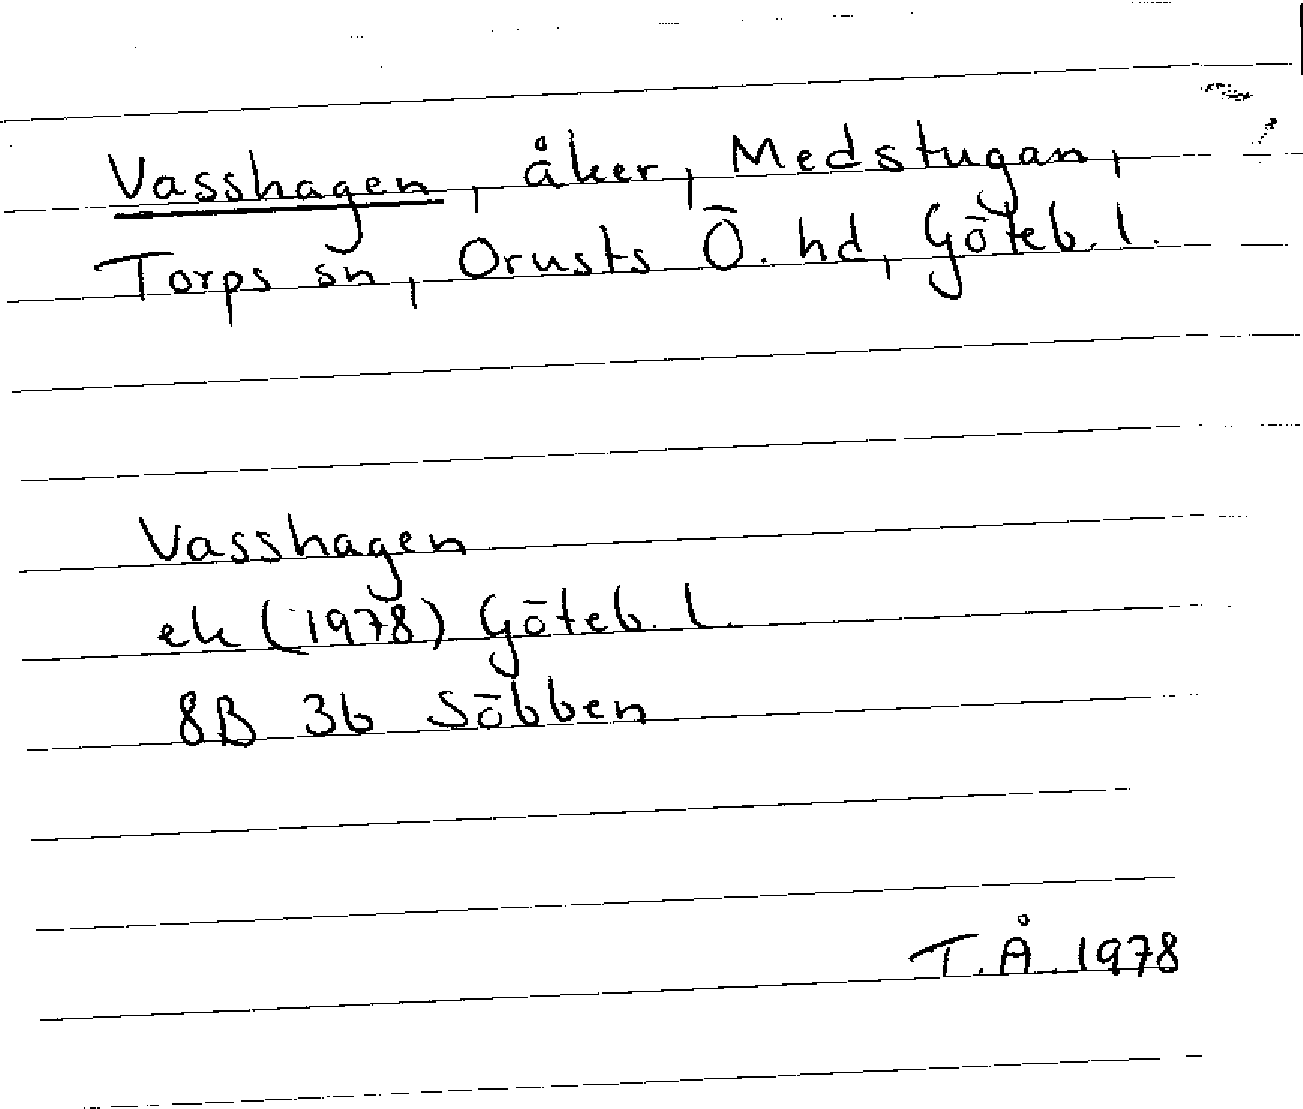 Vasshagen, åker, Medstugan,
Torps sn, Orusts Ö. hd, Göteb. l.
Vasshagen
ek (1978) Göteb. l.
8B 3b Söbben
T.Å. 1978